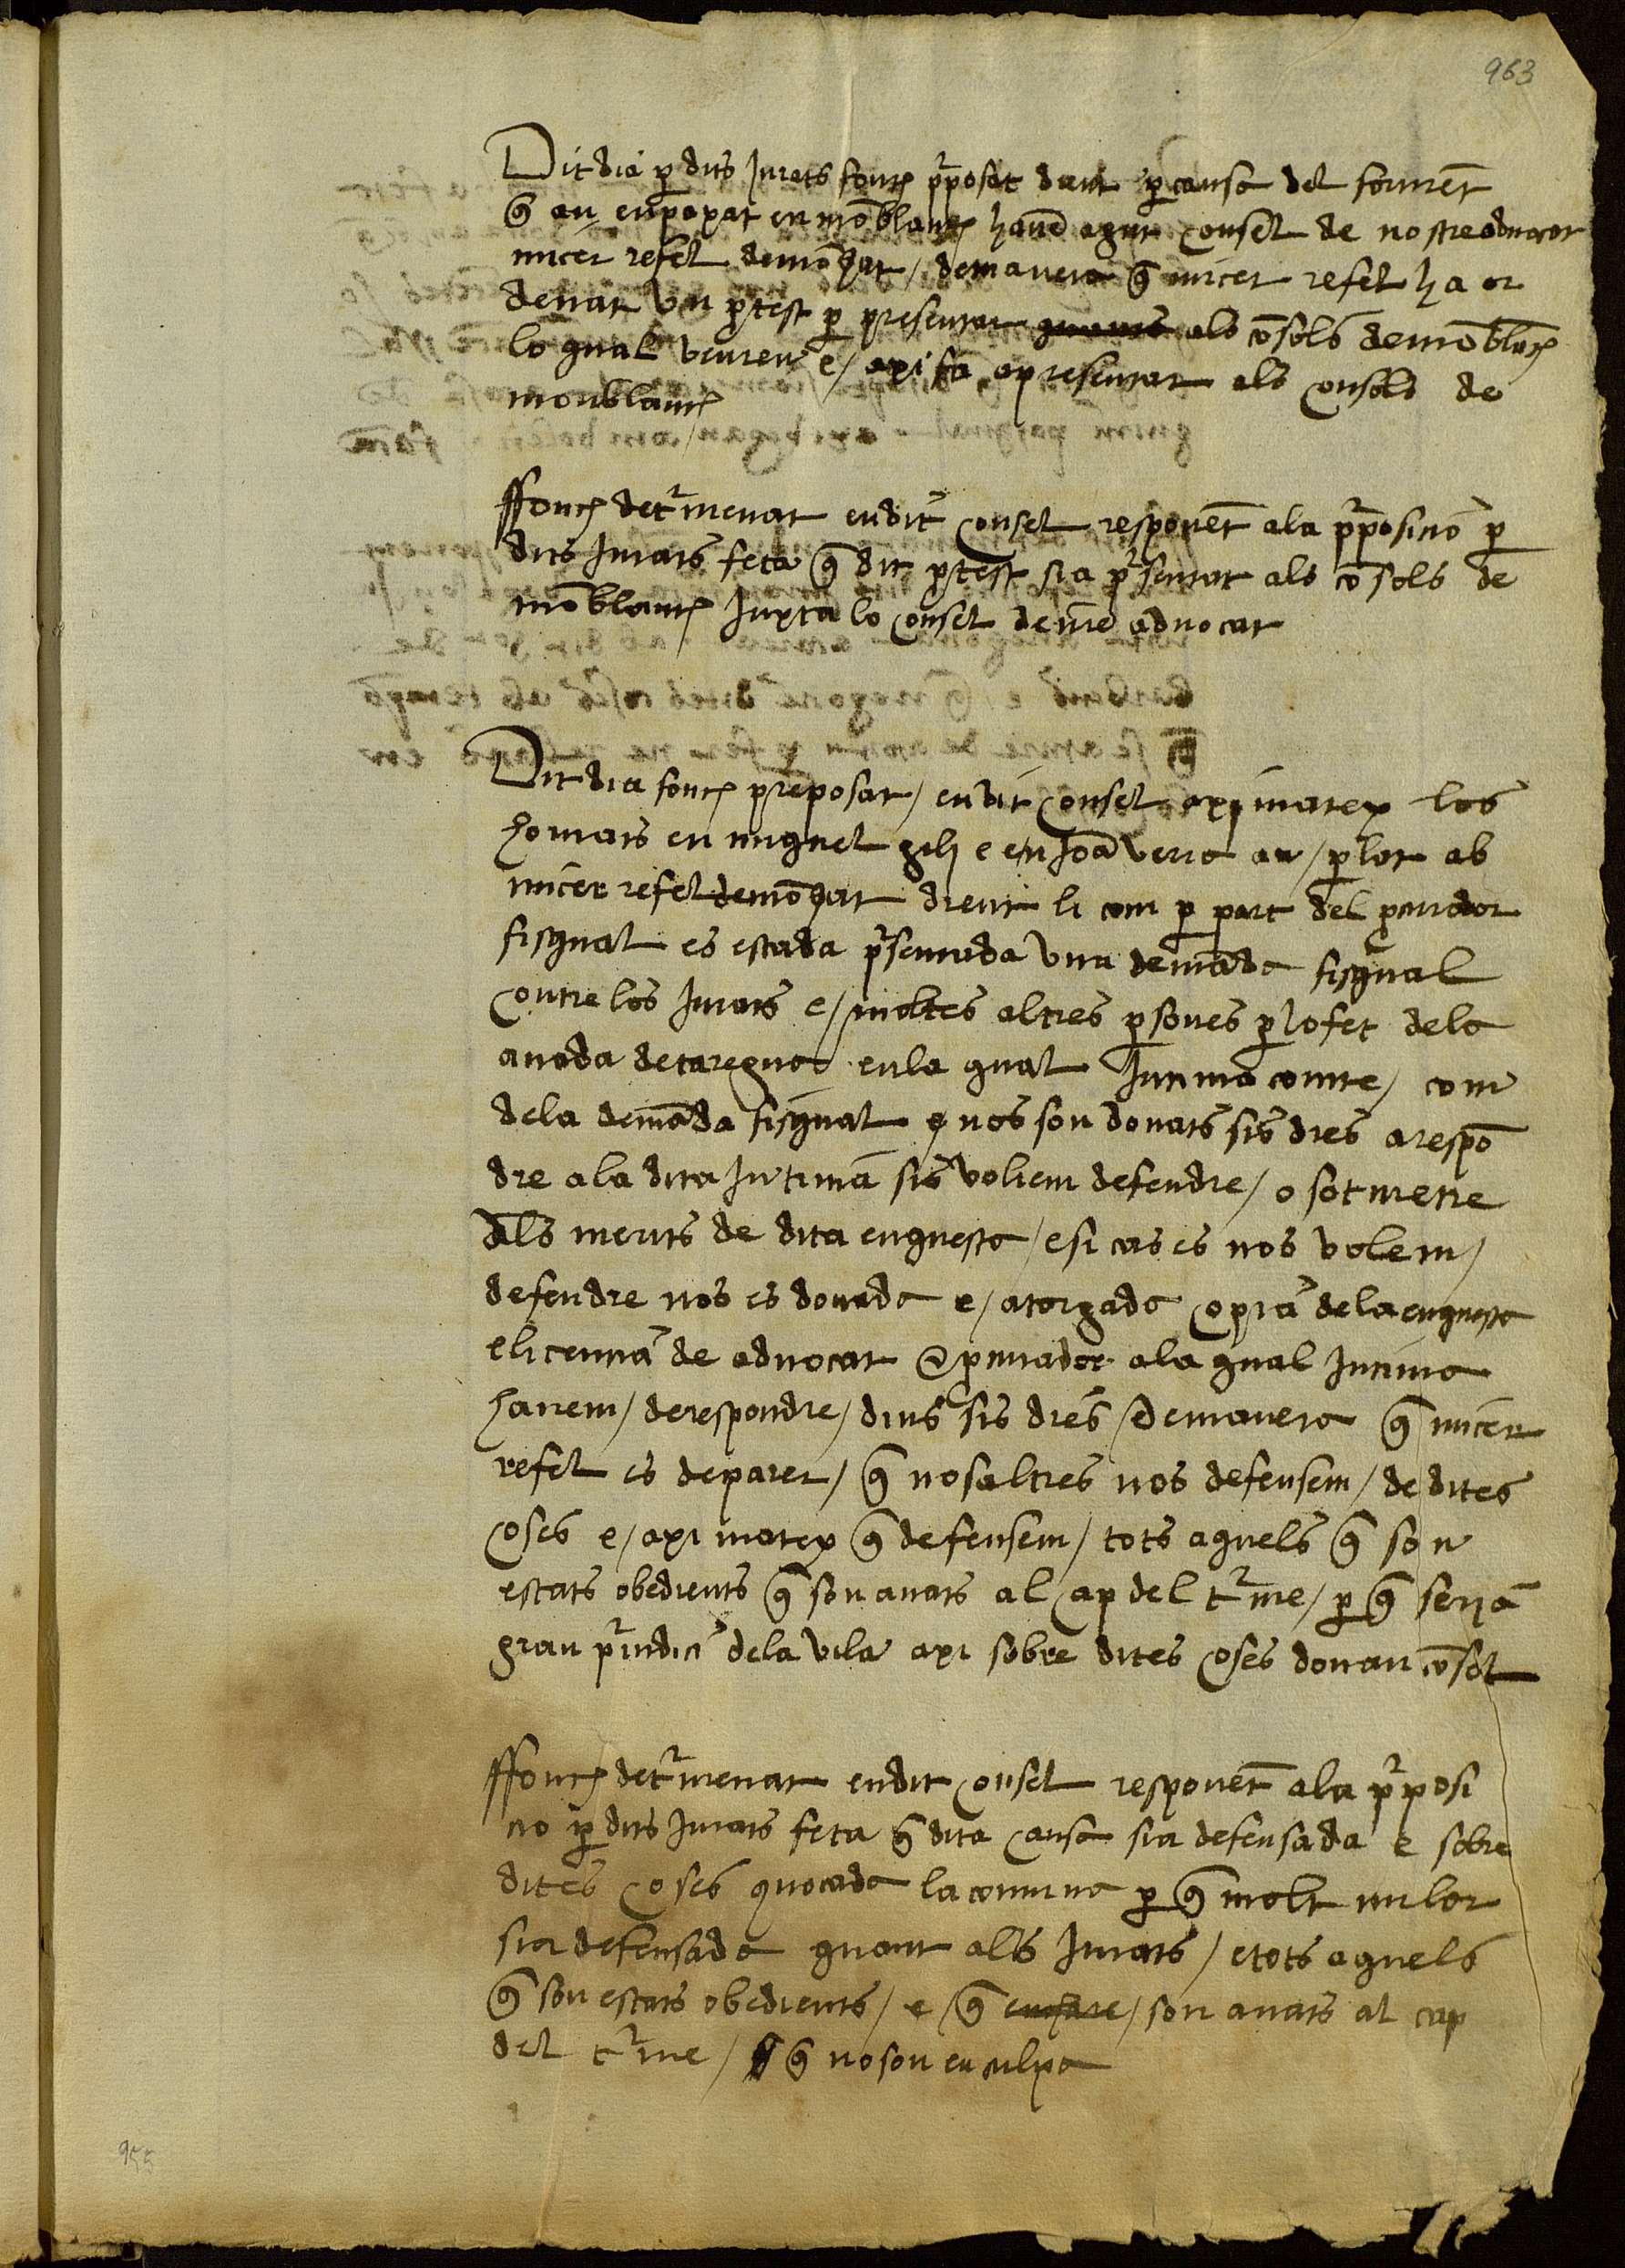 963
Dit dia p dits Jurats fonch pposat dient p causa del forment
q̄ an enpaxat en mōblanch havē agut consell de nostre advocat
micer refel demōgat / de manera q̄ micer refel ha or
denat un ptest p presentar als cōsols de mōblāch
lo qual veuren e / axi fa apresentar als consols de
monblanch
ffonch detmenat en dit consel responēt a la pposicio p
dits Jurats feta q̄ dit ptest sia psentat als cōsols de
mōblanch Juxta lo consel de nr̄e advocat
Dit dia fonch preposat / en dit consel axi matex los
homats en miquel gili e en Joā verra an / plat ab
micer refel demōgat dient li com p part del pcurador
fisqual es estada psentada una demāda fisqual
contre los Jurats e / moltes altres psones p lo fet dela
anada de taregua en la qual Intima contre / com
dela demāda fisqual e nos son donats sis dies a respō
dre a la dita Intimā sis voliem defendre / o sotmetre
als merits de dita enquesta / e si cas es nos volem /
defendre nos es donada e / atorgada copiā de la enquesta
e licenciā de advocat e pcurador a la qual Intima
havem / de respondre / dins sis dies / de manera q̄ micer
refel es de parer / q̄ nosaltres nos defensem / de dites
coses e / axi matex q̄ defensem / tots aquels q̄ son
estats obedients q̄ son anats al cap del tme / p q̄ seria
gran pindici dela vila axi sobre dites coses donau cōsel
ffonch detmenat en dit consel responēt a la pposi
cio p dits Jurats feta q̄ dita causa sia defensada e sobre
dites coses
sia defensada quant als Jurats / e tots aquels
q̄ son estats obedients / e q̄ / son anats al cap
del tme / q̄ no son en culpa
955